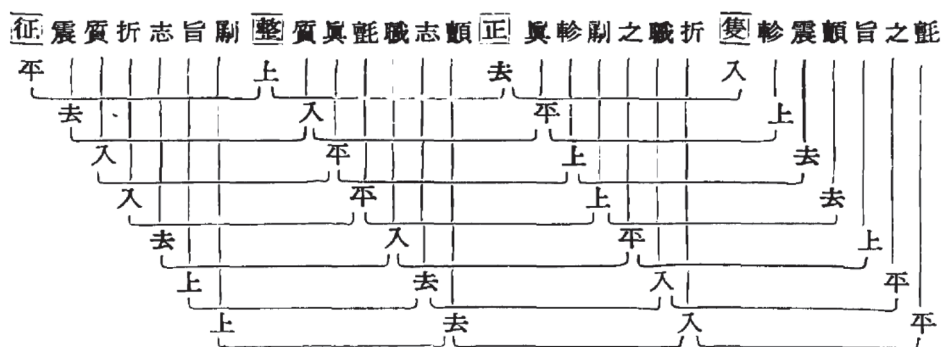 征震質折志旨剬整質眞氈職志顫正眞軫剬之職折隻軫震顫旨之氈
平 上 去 入
去 入 平 上
入 平 上 去
入 平 上 去
去 入 平 上
上 去 入 平
上 去 入 平